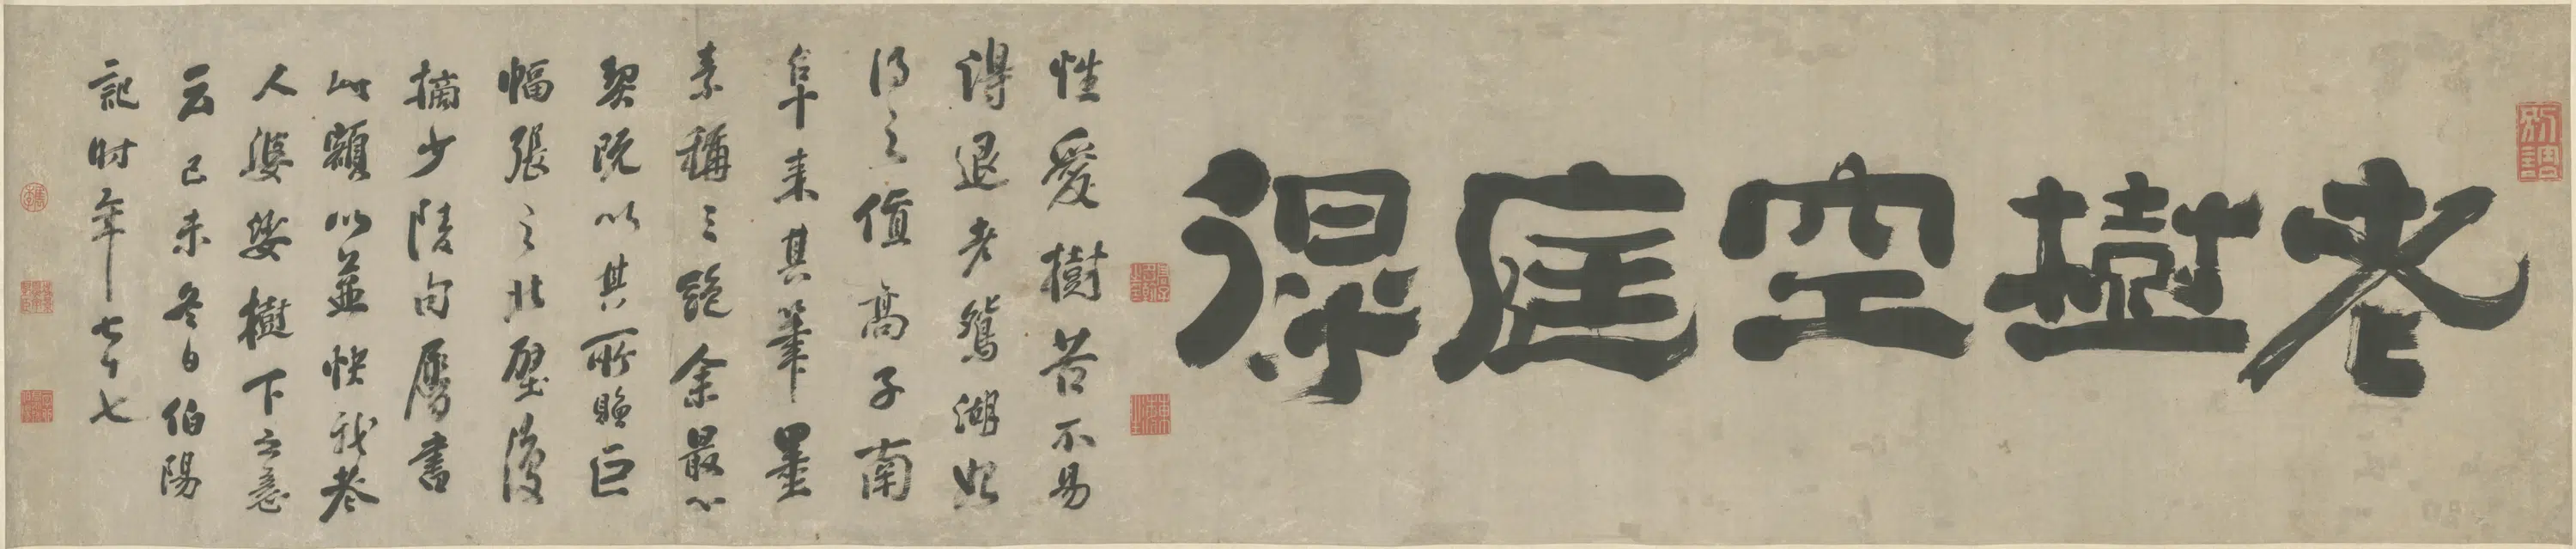 老樹空庭得
性愛樹苦不易
得退老鴛湖始
得之値高子南
阜来其筆墨
素稱三絕余最心
契既以其所贈巨
幅張之北壁復
摘少陵句属書
此額以並快我老
人婆娑樹下之意
云己未冬日伯陽
記时年七十七